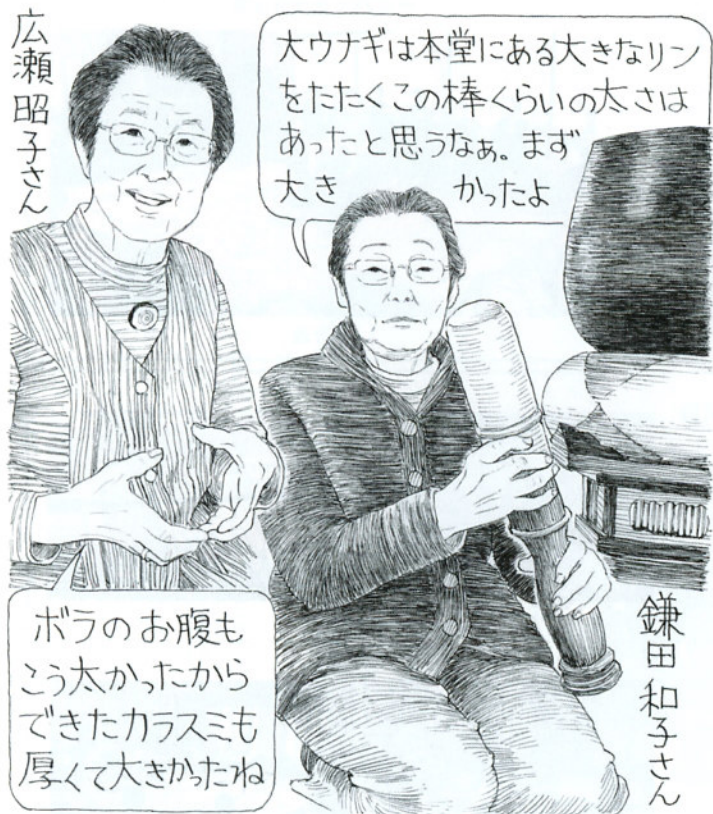 広瀬昭子さん
大ウナギは本堂にある大きなリン
をたたくこの棒くらいの太さは
あったと思うなぁ。まず
大き かったよ
ボラのお腹も
こう太かったから
できたカラスミも
厚くて大きかったね
鎌田和子さん